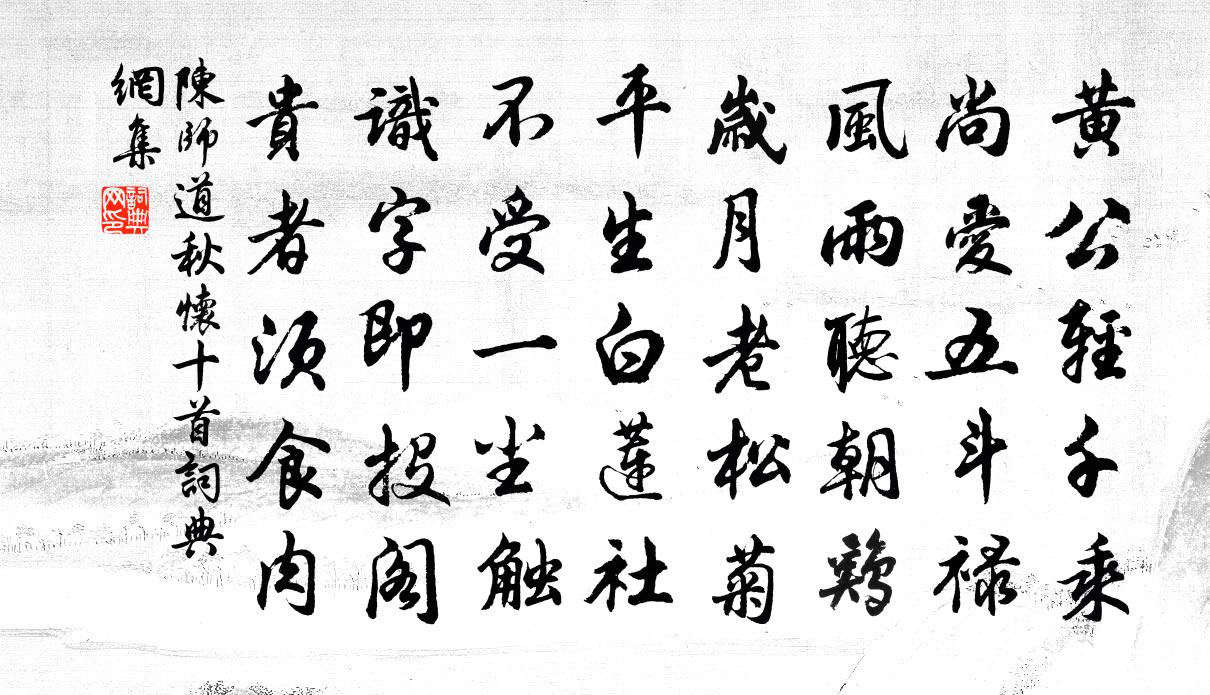 黄公輕千乘
尚愛五斗禄
風雨聽朝鷄
歲月老松菊
平生白蓮社
不受一尘触
識字即投閣
貴者須食肉
陳師道秋懷十首詞典
網集
詞典
网印